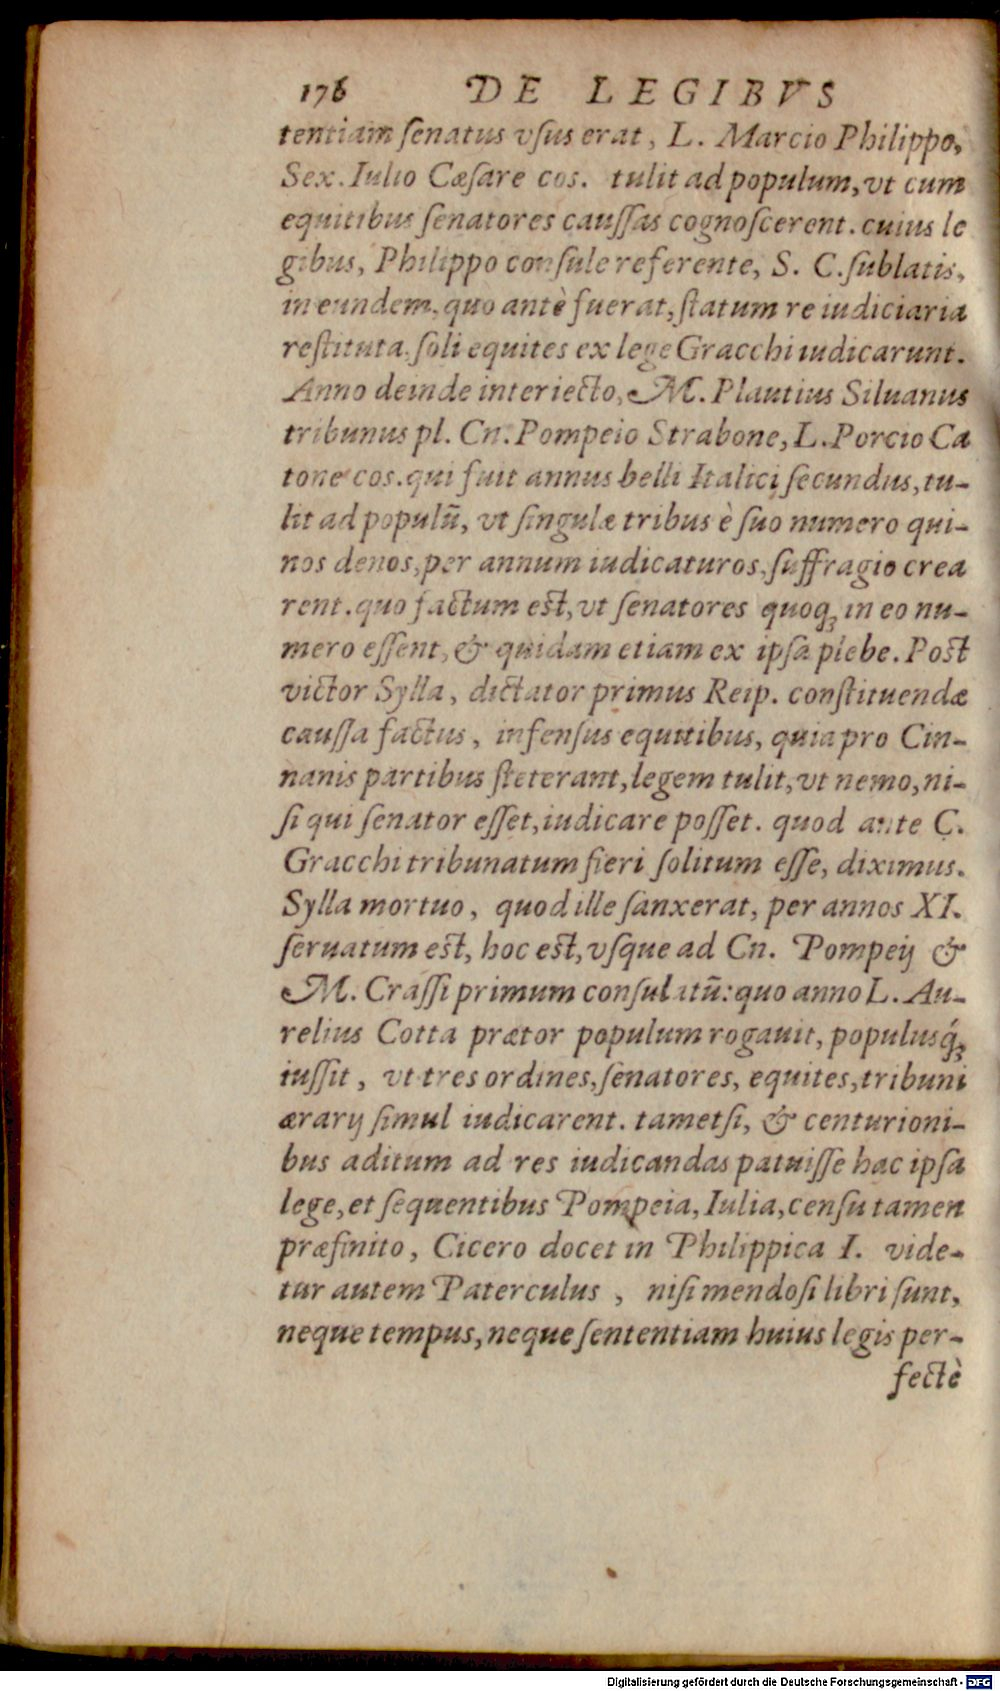 176 DE LEGIBVS
tentiam ſenatus vſus erat, L. Marcio Philippo,
Sex. Iulio Cæſare cos. tulit ad populum, vt cum
equitibus ſenatores cauſſas cognoſcerent. cuius le
gibus, Philippo conſule referente, S. C. ſublatis,
in eundem, quo antè fuerat, ſtatum re iudiciaria
reſtituta, ſoli equites ex lege Gracchi iudicarunt.
Anno deinde interiecto, M. Plautius Siluanus
tribunus pl. Cn. Pompeio Strabone, L. Porcio Ca
tone cos. qui fuit annus belli Italici ſecundus, tu-
lit ad populū, vt ſingulæ tribus è ſuo numero qui-
nos denos, per annum iudicaturos, ſuffragio crea
rent. quo factum eſt, vt ſenatores quoqꝫ in eo nu-
mero eſſent, & quidam etiam ex ipſa plebe. Poſt
victor Sylla, dictator primus Reip. conſtituendæ
cauſſa factus, infenſus equitibus, quia pro Cin-
nanis partibus ſteterant, legem tulit, vt nemo, ni-
ſi qui ſenator eſſet, iudicare poſſet. quod ante C.
Gracchi tribunatum fieri ſolitum eſſe, diximus.
Sylla mortuo, quod ille ſanxerat, per annos XI.
ſeruatum eſt, hoc eſt, vſque ad Cn. Pompeij &
M. Craſſi primum conſulatū: quo anno L. Au-
relius Cotta prætor populum rogauit, populusq́ꝫ
iuſſit, vt tres ordines, ſenatores, equites, tribuni
ærarij ſimul iudicarent. tametſi, & centurioni-
bus aditum ad res iudicandas patuiſſe hac ipſa
lege, et ſequentibus Pompeia, Iulia, cenſu tamen
præfinito, Cicero docet in Philippica I. vide-
tur autem Paterculus, niſi mendoſi libri ſunt,
neque tempus, neque ſententiam huius legis per-
fectè
Digitalisierung gefördert durch die Deutsche Forschungsgemeinschaft - DFG